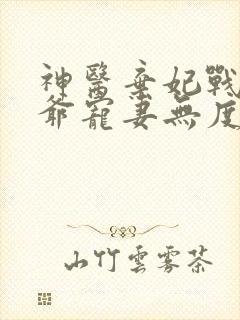 神醫棄妃戰
爺寵妻無度
山竹雲霧茶